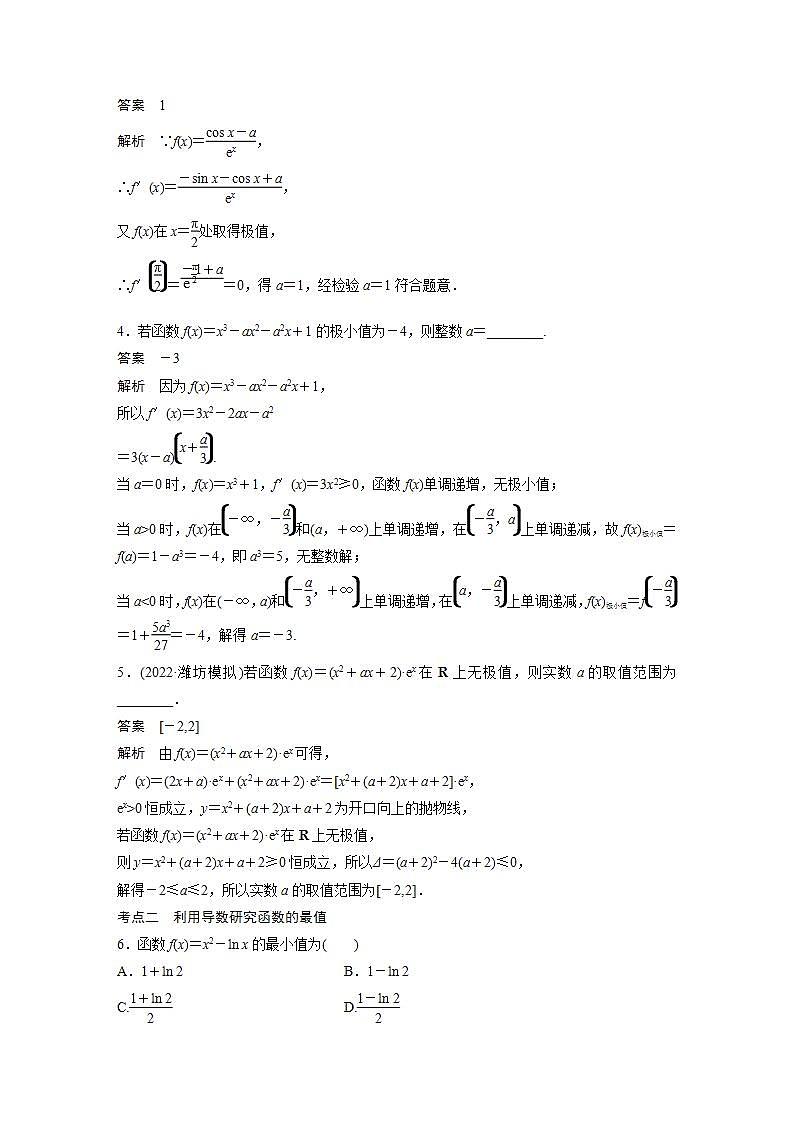 答案　1
解析　∵f(x)＝(cos x－a)/eˣ，
∴f′(x)＝(－sin x－cos x＋a)/eˣ，
又 f(x)在 x＝π/2处取得极值，
∴f′(π/2)＝(－1＋a)/e^(π/2)＝0，得 a＝1，经检验 a＝1 符合题意．
4．若函数 f(x)＝x³－ax²－a²x＋1 的极小值为－4，则整数 a＝________.
答案　－3
解析　因为 f(x)＝x³－ax²－a²x＋1，
所以 f′(x)＝3x²－2ax－a²
＝3(x－a)(x＋a/3).
当 a＝0 时，f(x)＝x³＋1，f′(x)＝3x²≥0，函数 f(x)单调递增，无极小值；
当 a>0 时，f(x)在(－∞，－a/3)和(a，＋∞)上单调递增，在(－a/3，a)上单调递减，故 f(x)极小值＝
f(a)＝1－a³＝－4，即 a³＝5，无整数解；
当 a<0 时，f(x)在(－∞，a)和(－a/3，＋∞)上单调递增，在(a，－a/3)上单调递减，f(x)极小值＝f(－a/3)
＝1＋5a³/27＝－4，解得 a＝－3.
5．(2022·潍坊模拟)若函数 f(x)＝(x²＋ax＋2)·eˣ 在 R 上无极值，则实数 a 的取值范围为
________．
答案　[－2,2]
解析　由 f(x)＝(x²＋ax＋2)·eˣ 可得，
f′(x)＝(2x＋a)·eˣ＋(x²＋ax＋2)·eˣ＝[x²＋(a＋2)x＋a＋2]·eˣ，
eˣ>0 恒成立，y＝x²＋(a＋2)x＋a＋2 为开口向上的抛物线，
若函数 f(x)＝(x²＋ax＋2)·eˣ 在 R 上无极值，
则 y＝x²＋(a＋2)x＋a＋2≥0 恒成立，所以Δ＝(a＋2)²－4(a＋2)≤0，
解得－2≤a≤2，所以实数 a 的取值范围为[－2,2]．
考点二　利用导数研究函数的最值
6．函数 f(x)＝x²－ln x 的最小值为(　　)
A．1＋ln 2　　B．1－ln 2
C.(1＋ln 2)/2　　D.(1－ln 2)/2